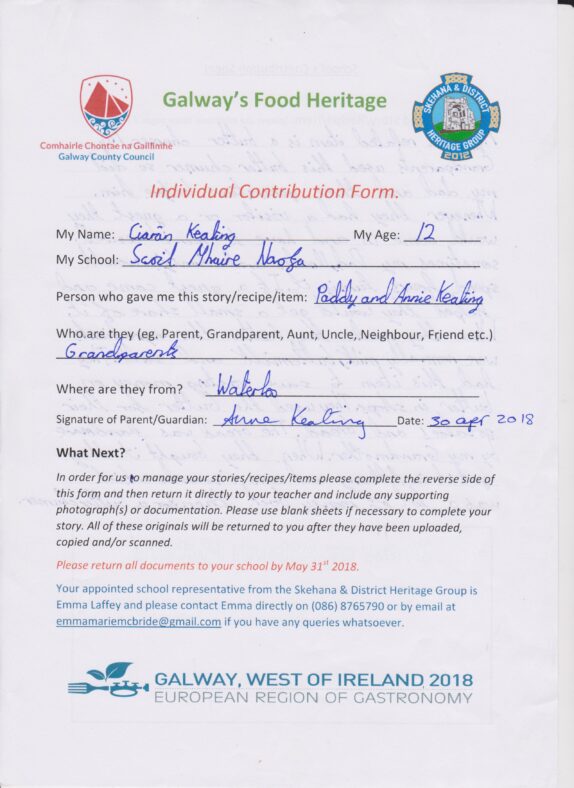 Galway's Food Heritage
SKEHANA & DISTRICT
HERITAGE GROUP
2012
Comhairle Chontae na Gaillimhe
Galway County Council
Individual Contribution Form.
My Name: Ciarán Keating My Age: 12
My School: Scoil Mhaire Naofa
Person who gave me this story/recipe/item: Paddy and Annie Keating
Who are they (eg. Parent, Grandparent, Aunt, Uncle, Neighbour, Friend etc.)
Grandparents
Where are they from? Waterloo
Signature of Parent/Guardian: Anne Keating Date: 30 apr 2018
What Next?
In order for us to manage your stories/recipes/items please complete the reverse side of
this form and then return it directly to your teacher and include any supporting
photograph(s) or documentation. Please use blank sheets if necessary to complete your
story. All of these originals will be returned to you after they have been uploaded,
copied and/or scanned.
Please return all documents to your school by May 31st 2018.
Your appointed school representative from the Skehana & District Heritage Group is
Emma Laffey and please contact Emma directly on (086) 8765790 or by email at
emmamariemcbride@gmail.com if you have any queries whatsoever.
GALWAY, WEST OF IRELAND 2018
EUROPEAN REGION OF GASTRONOMY